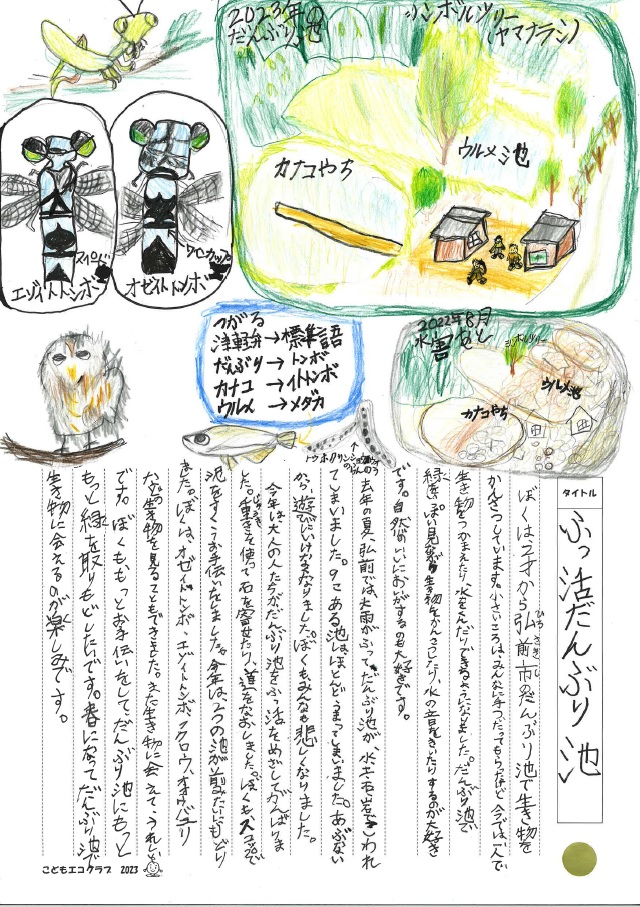 2023年
だんぶり池
シンボルツリー
(ヤマナラシ)
ウルメ池
カナコやち
エゾイトトンボ
スペード
オゼイトトンボ
ワイングラス
つがる
津軽弁→標準語
だんぶり→トンボ
カナコ→イトトンボ
ウルメ→メダカ
2022年8月
水害あと
シンボルツリー
ウルメ池
カナコやち
トウホクサンショウウオ
のらんのう
タイトル
ふっ活だんぶり池
ぼくは2才から弘前市のだんぶり池で生き物を
ひろさきし
かんさつしています。小さいころはみんなに手つだってもらったけど、今では一人で
生き物をつかまえたり、水をくんだりできるようになりました。だんぶり池で
緑をいっぱい見ながら生き物をかんさつしたり、水の音をきいたりするのが大好き
です。自然のいいにおいがするのも大好きです。
去年の夏、弘前では大雨がふって、だんぶり池が、水や土や岩でこわれ
てしまいました。9こある池はほとんどうまってしまいました。あぶない
から遊びにいけなくなりました。ぼくもみんなも悲しくなりました。
今年は大人の人たちがだんぶり池をふっ活をめざしてがんばりま
した。重きを使って石を寄せたり、道をなおしました。ぼくも、スコップで
じゅうき
泥をすくうお手伝いをしました。今年は2つの池が前みたいにもどり
ました。ぼくは、オゼイトトンボ、エゾイトトンボ、フクロウ、オオカマキリ
などの生き物を見ることもできました。また生き物に会えて、うれしい
です。ぼくももっとお手伝いをして、だんぶり池にもっと
もっと緑を取りもどしたいです。春になって、だんぶり池で
生き物に会えるのが楽しみです。
こどもエコクラブ 2023